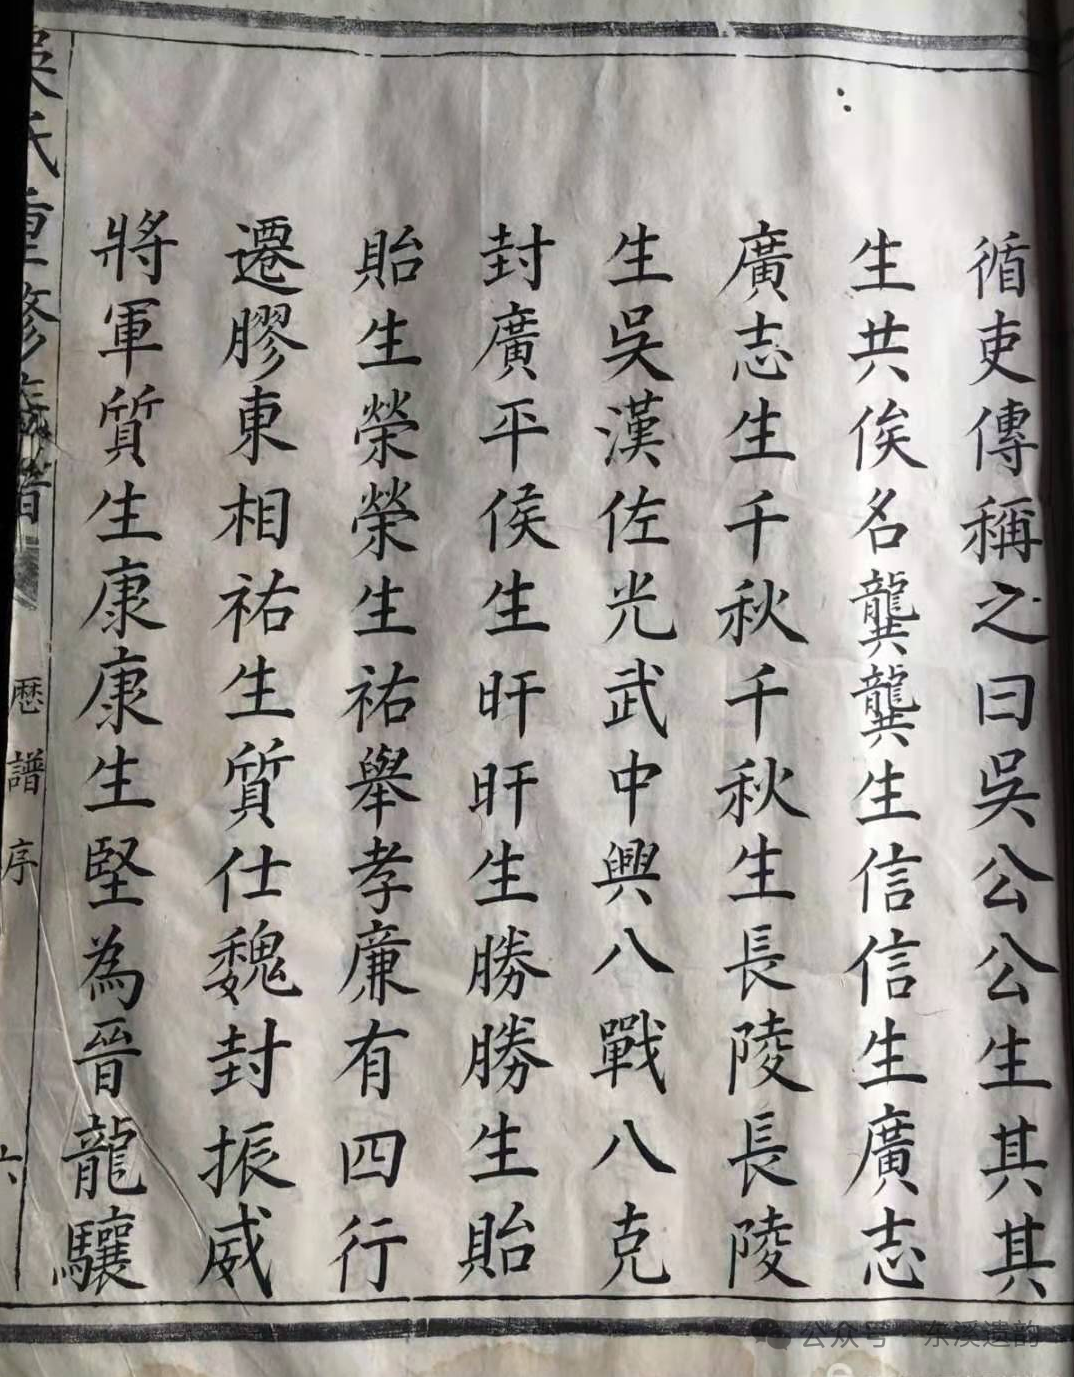 循吏傳稱之曰吳公公生其其
生共俟名龔龔生信信生廣志
廣志生千秋千秋生長陵長陵
生吳漢佐光武中興八戰八克
封廣平侯生旰旰生勝勝生貽
貽生榮榮生祐舉孝廉有四行
遷膠東相祐生質仕魏封振威
將軍質生康康生堅為晉龍驤
吳氏重修
歷譜序
六
公众号·东溪遗韵